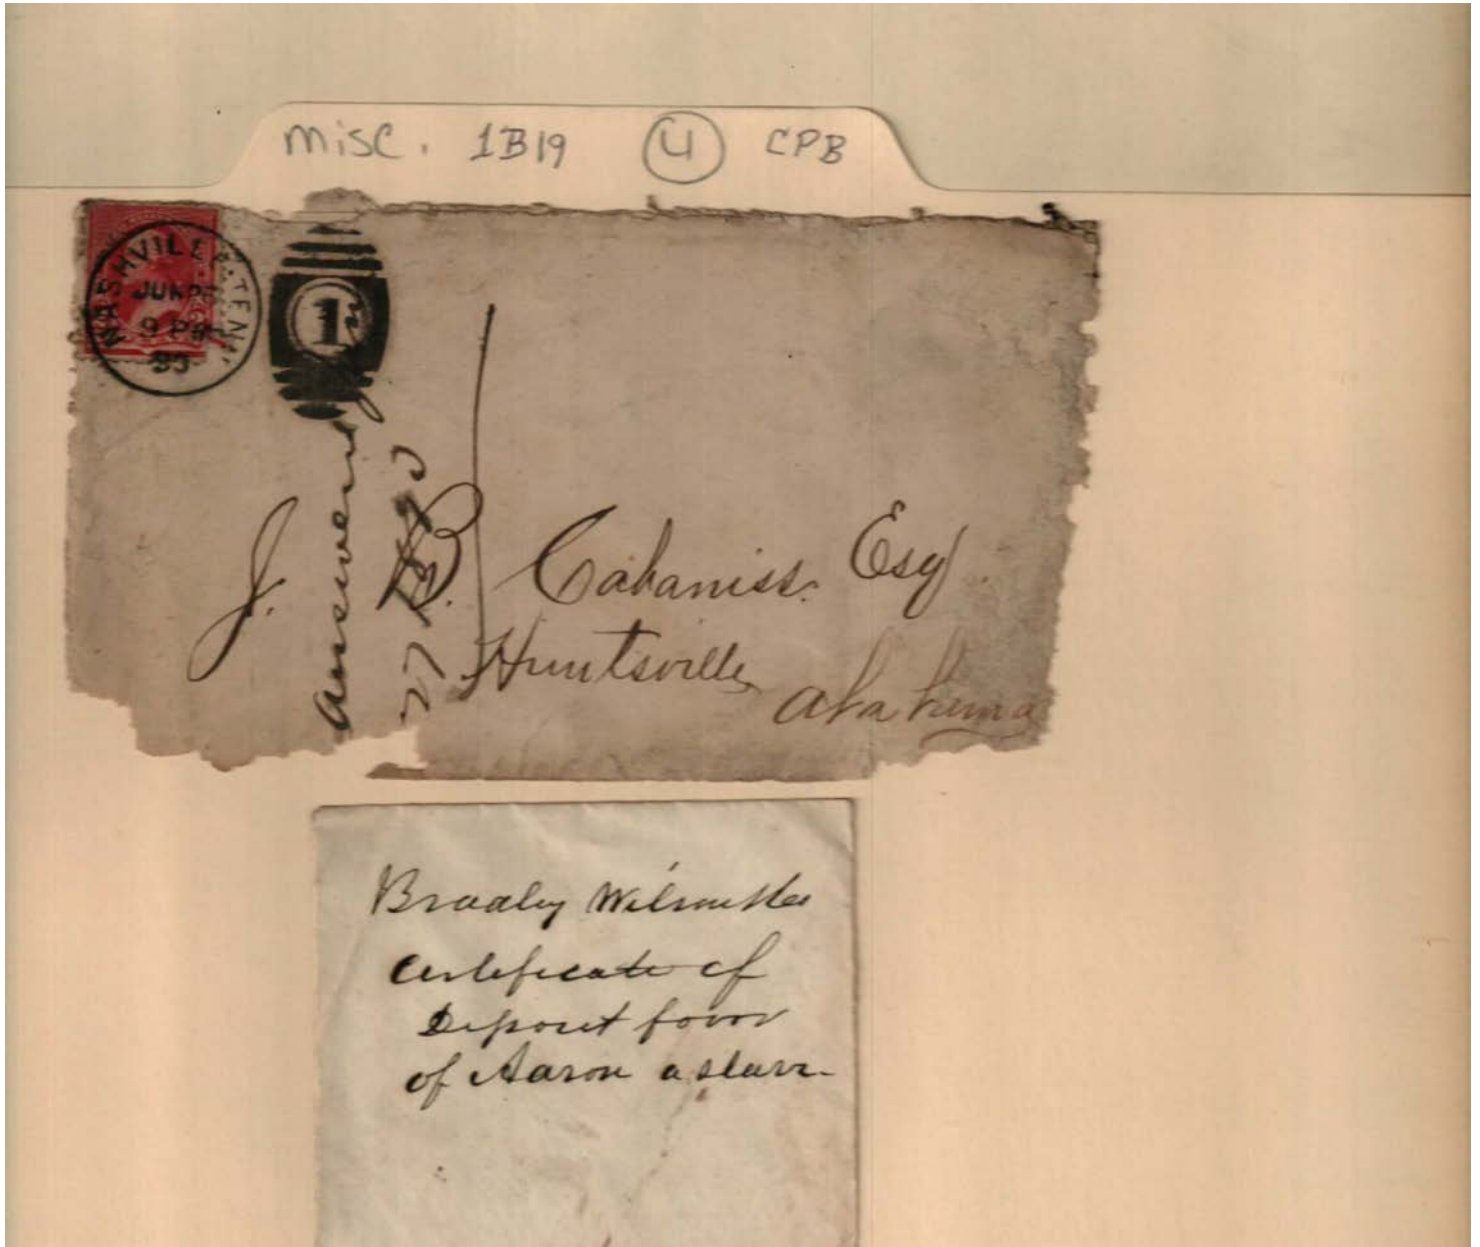 misc. 1B19 (4) CPB
NASHVILLE, TENN.
JUN
9 PM
1
answered
J. B. Cabaniss. Esq
Huntsville
alabama
Bradley Wilson &co
Certificate of
Deposit favor
of Aaron a slave